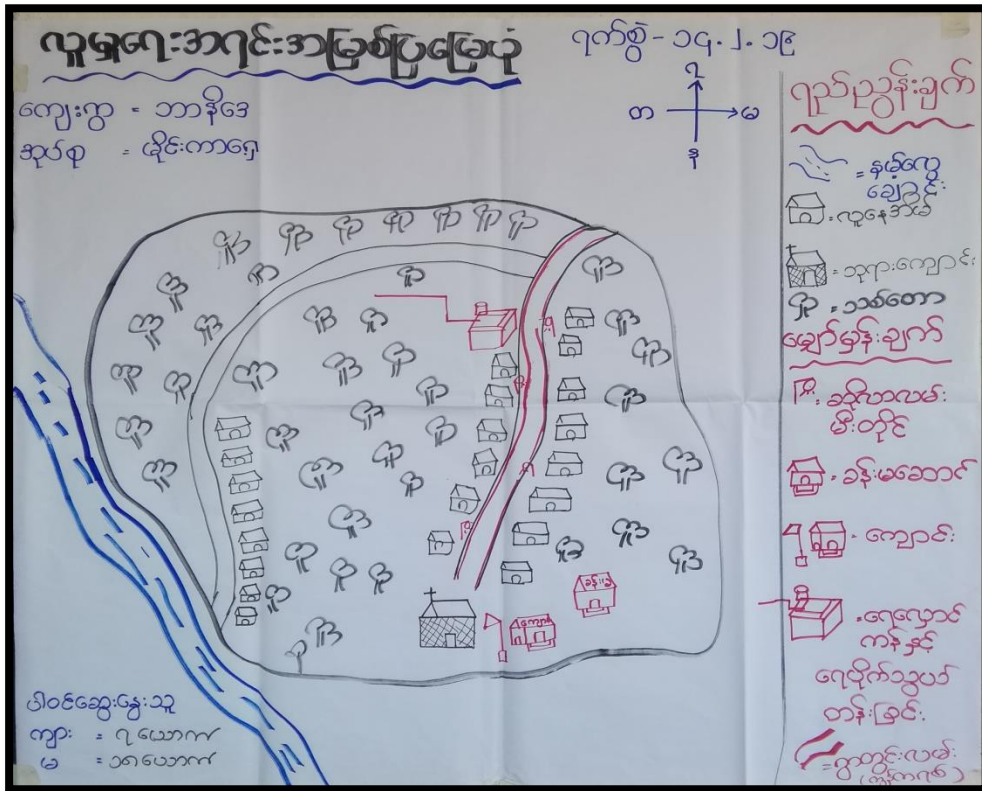 လူမှုရေးအရင်းအမြစ်ပြမြေပုံ
ရက်စွဲ - ၁၄.၂.၁၉
ကျေးရွာ = ဘာနိဒေ
အုပ်စု = ယိုင်းကာရှေ
တ
မ
န
ရည်ညွှန်းချက်
= နမ့်လွေ
ချောင်း
= လူနေအိမ်
= ဘုရားကျောင်း
= သစ်တော
မျှော်မှန်းချက်
= ဆိုလာလမ်း
မီးတိုင်
= ခန်းမဆောင်
= ကျောင်း
= ရေလှောင်
ကန်နှင့်
ရေပိုက်သွယ်
တန်းခြင်း
= ရွာတွင်းလမ်း
ခန်းမ
ကျောင်း
ပါဝင်ဆွေးနွေးသူ
ကျား = ၇ ယောက်
မ = ၁၈ ယောက်